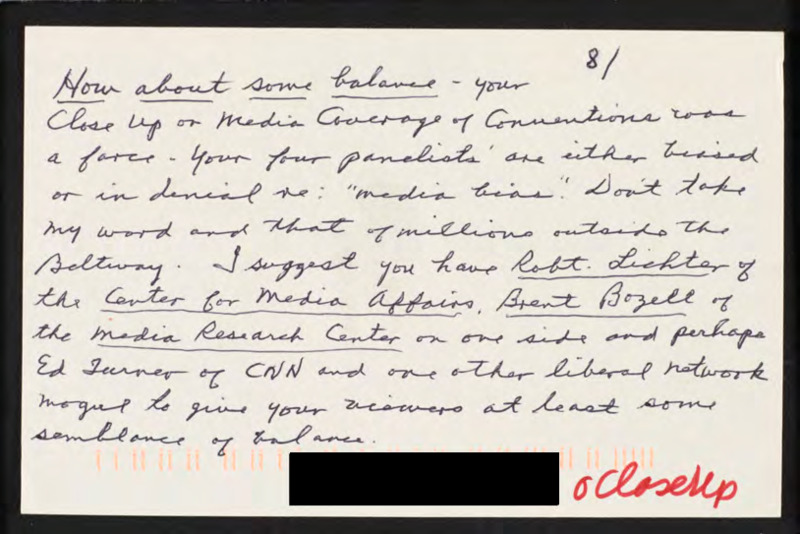 8/
How about some balance - your
Close Up on Media Coverage of Conventions was
a farce - Your four panelists' are either biased
or in denial re: "media bias". Don't take
my word and that of millions outside the
Beltway. I suggest you have Robt. Lichter of
the Center for Media Affairs, Brent Bozell of
the Media Research Center on one side and perhaps
Ed Turner of CNN and one other liberal network
mogul to give your viewers at least some
semblance of balance.
CloseUp